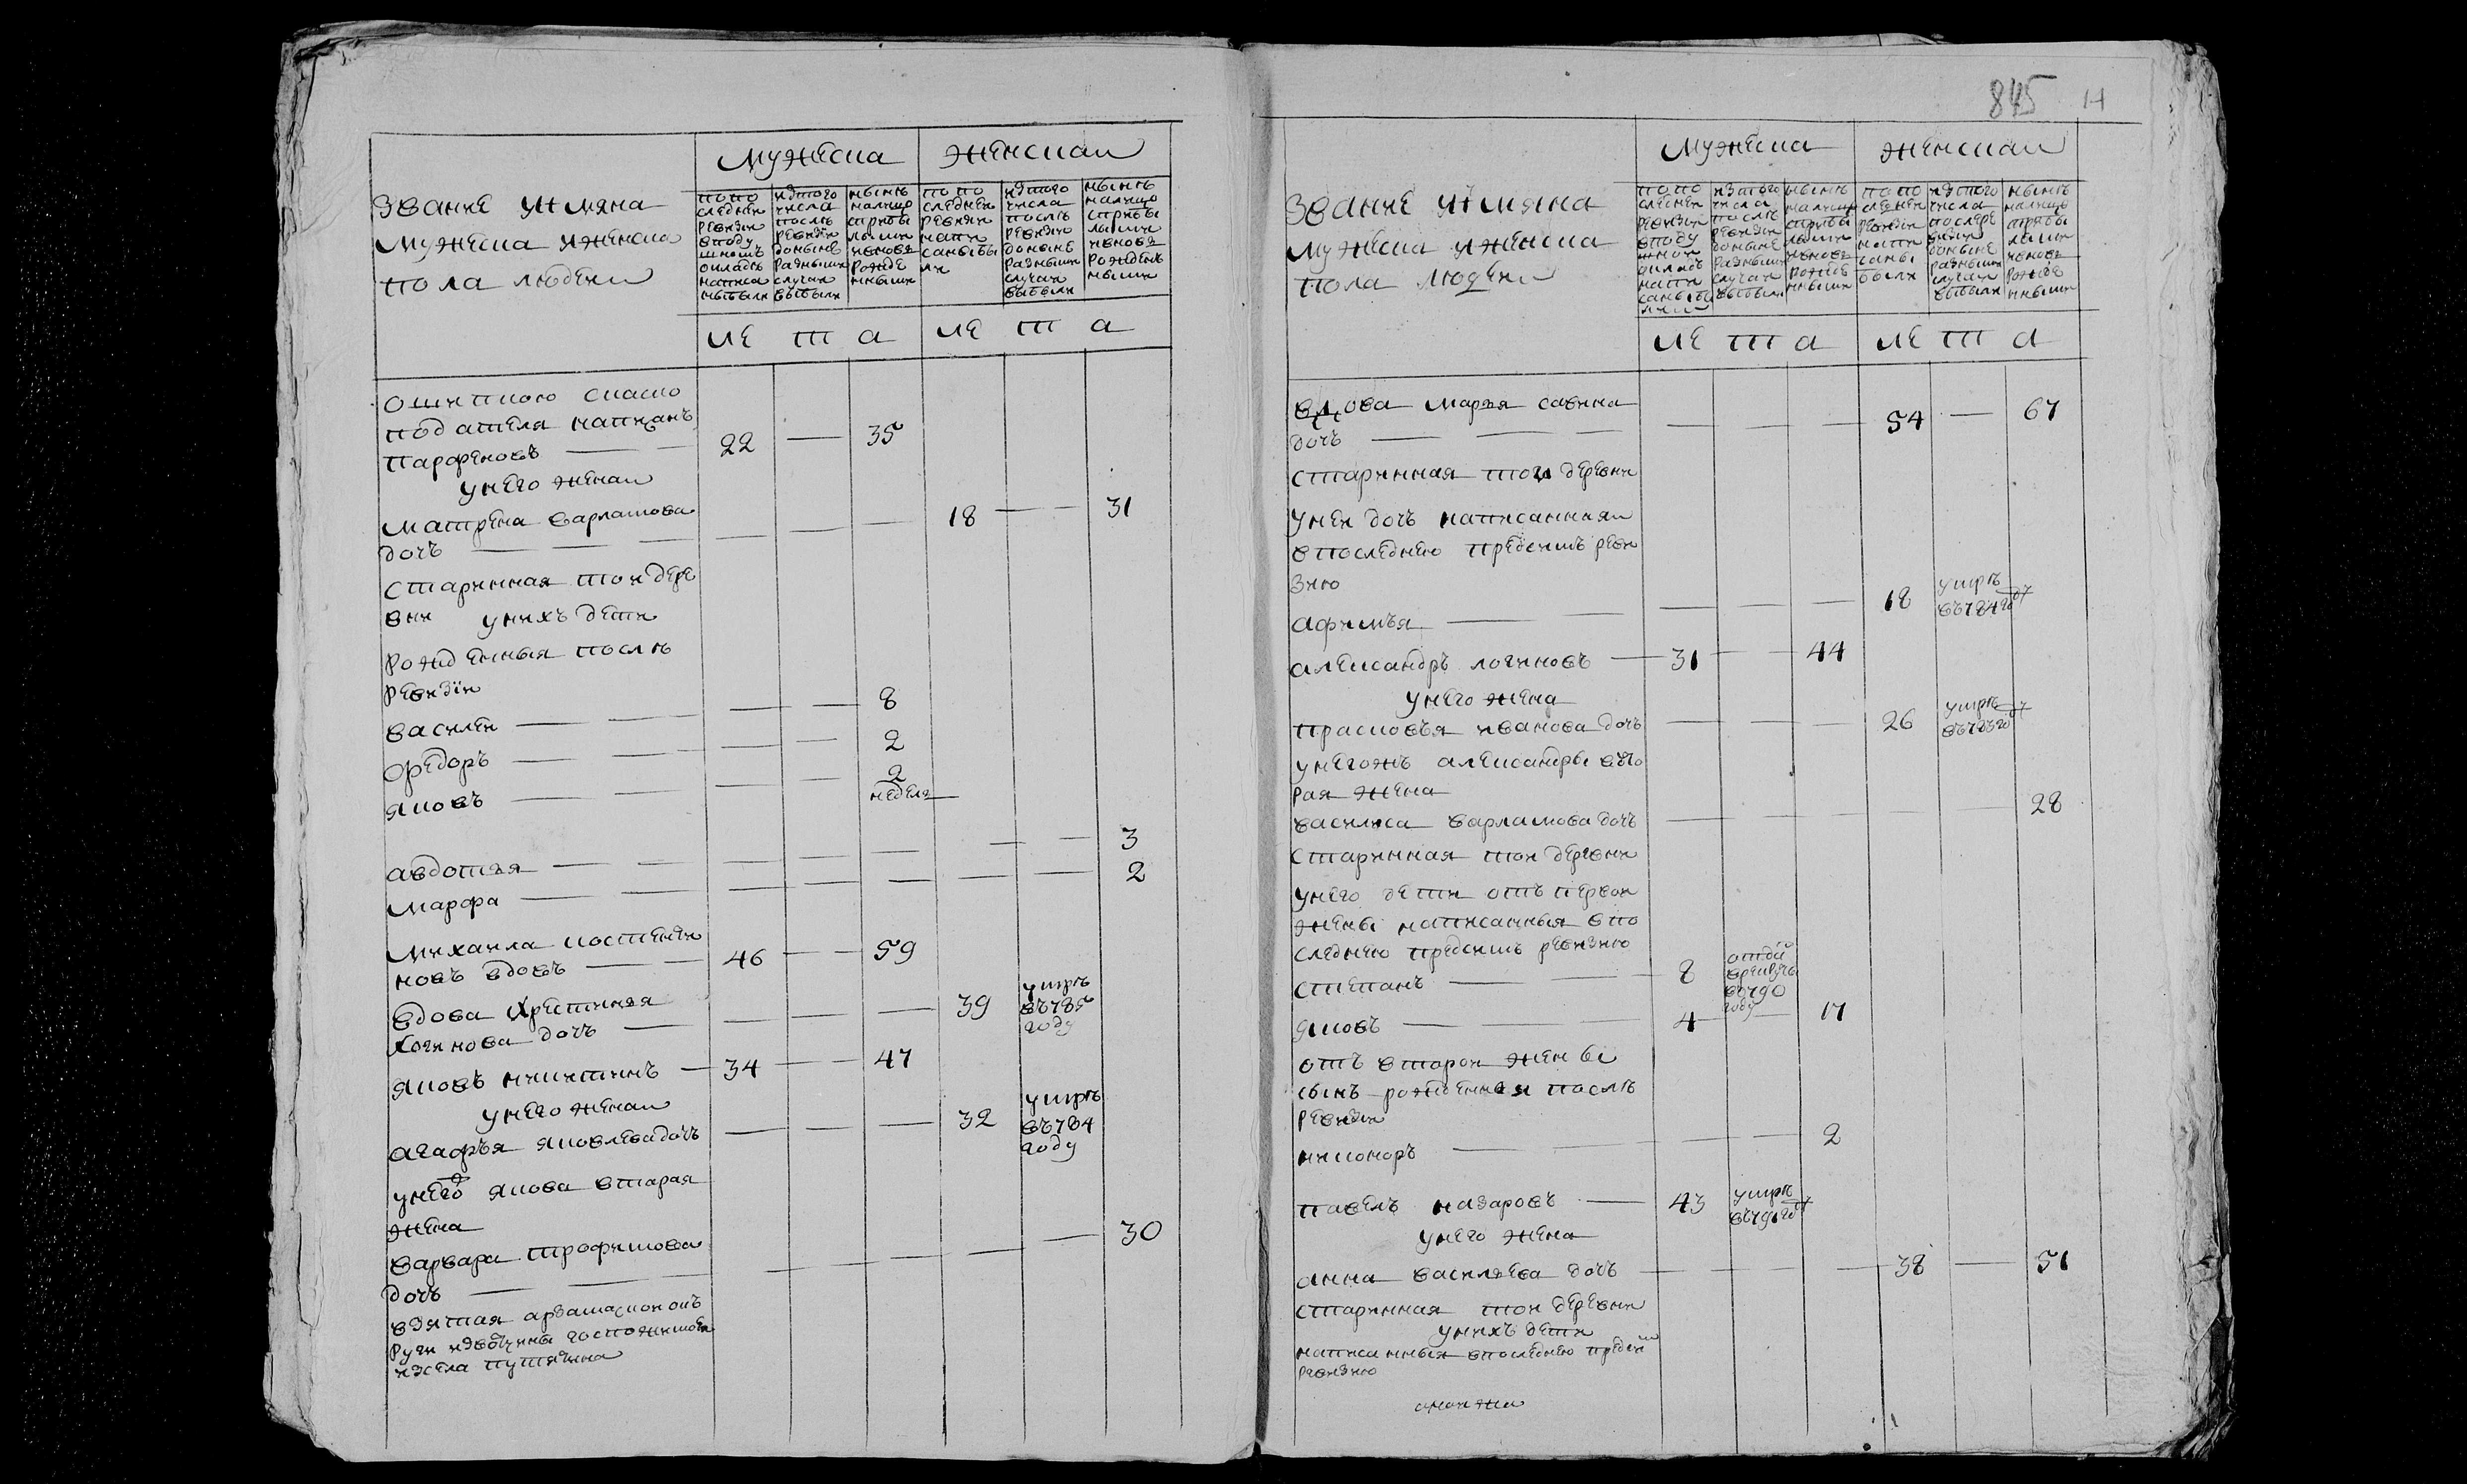 мужеска женскаи
звание и имяна
мужеска и женска
пола людеи
по по
следнеи
ревизии
в поду
шномъ
окладѣ
написа
ны были
из того
числа
послѣ
ревизии
донынѣ
разными
случаи
выбыли
нынѣ
налицо
с прибы
лыми
и вновь
рожде
нными
по по
следнеи
ревизии
напи
саны бы
ли
из того
числа
послѣ
ревизии
донынѣ
разными
случаи
выбыли
нынѣ
налицо
с прибы
лыми
и вновь
рожденъ
ными
ле т а ле т а
подателя
парфеновъ 22 35
у него женаи
матрена варламова
дочъ 18 31
старинная тои дере
вни у них детеи
рожденныя послѣ
ревизiи
василеи 8
федоръ 2
яковъ 2
неделя
авдотья 3
марфа 2
михаила костентеи
новъ вдовъ 46 59
вдова христинья
логинова дочъ 39 умрѣ
въ 785
году
яковъ никитинъ 34 47
у него женаи
агафья яковлева дочъ 32 умрѣ
въ 784
году
у него якова вторая
жена
варвара трофимова
дочъ 30
взятая арзамаскои ок
руги из вотчины госпожи
из села путятина
845 14
мужеска женскаи
звание и имяна
мужеска и женска
пола людеи
по по
следнеи
ревизiи
в поду
шномъ
окладѣ
напи
саны бы
ли
из того
числа
послѣ
ревизии
донынѣ
разными
случаи
выбыли
нынѣ
налицо
с прибы
лыми
и вновь
рожде
нными
по по
следнеи
ревизiи
напи
саны
были
из того
числа
после ре
визии
донынѣ
разными
случаи
выбыли
нынѣ
налицо
с прибы
лыми
и вновь
рожде
нными
ле т а ле т а
вдова марья савина
дочъ 54 67
старинная тои деревни
у неи дочъ написанная
в последнею пред симъ реви
зию
афимья 18 умрѣ
въ 784 году
александръ логиновъ 31 44
у него жена
прасковья иванова дочъ 26 умрѣ
въ 783 году
у него жъ александры вто
рая жена
василиса варламова дочъ 28
старинная тои деревни
у него дети отъ первои
жены написанныя в по
следнею пред симъ ревизию
степанъ 8 отдан
в рекруты
в 790
году
яковъ 4 17
отъ второи жены
сынъ рожденнеи послѣ
ревизии
никоноръ 2
павелъ назаровъ 43 умрѣ
въ 791 году
у него жена
анна васильева дочъ 38 51
старинная тои деревни
у них дети
написанныя в последнею пред сим
ревизию